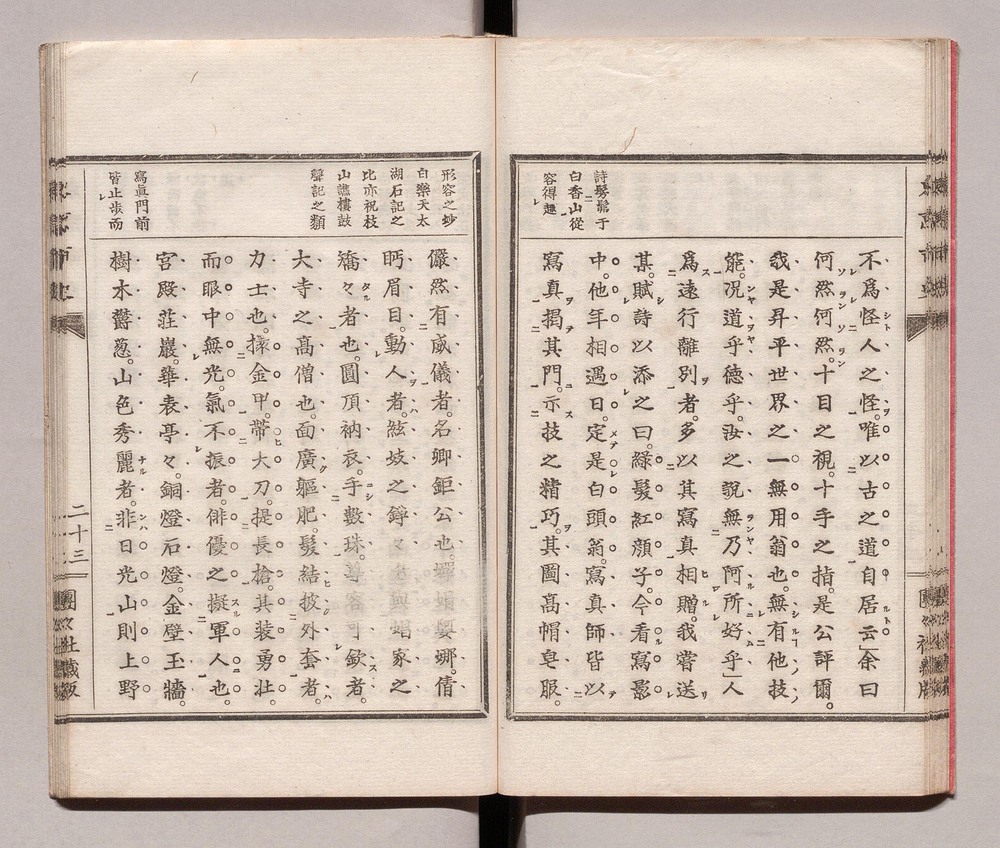 詩髣髴于
白香山從
容得趣
不爲怪人之怪。唯以古之道自居云」余曰
何然何然。十目之視。十手之指。是公評爾。
我是昇平世界之一無用翁也。無有他技
能。况道乎德乎。汝之說無乃阿所好乎」人
爲遠行離別者。多以其寫真相贈。我嘗送
某。賦詩以添之曰。綠髮紅顏子。今看寫影
中。他年相遇日。定是白頭翁。寫真師皆以
寫真揭其門。示技之精巧。其圖高帽皂服。
形容之妙
白樂天太
湖石記之
比亦祝枝
山譙樓鼓
聲記之類
儼然有威儀者。名卿鉅公也。嬋娟嬰娜。倩
眄眉目。動人者。絃妓之錚々與娼家之
矯々者也。圓頂衲衣。手數珠。尊容可欽者。
大寺之高僧也。面廣軀肥。髮結披外套者。
力士也。擐金甲。帶大刀。提長槍。其装勇壯。
而眼中無光。氣不振者。俳優之擬軍人也。
宮殿莊巖。華表亭々。銅燈石燈。金壁玉牆。
樹木欝葱。山色秀麗者。非日光山則上野
寫眞門前
皆止步而
二十三
團々社藏版